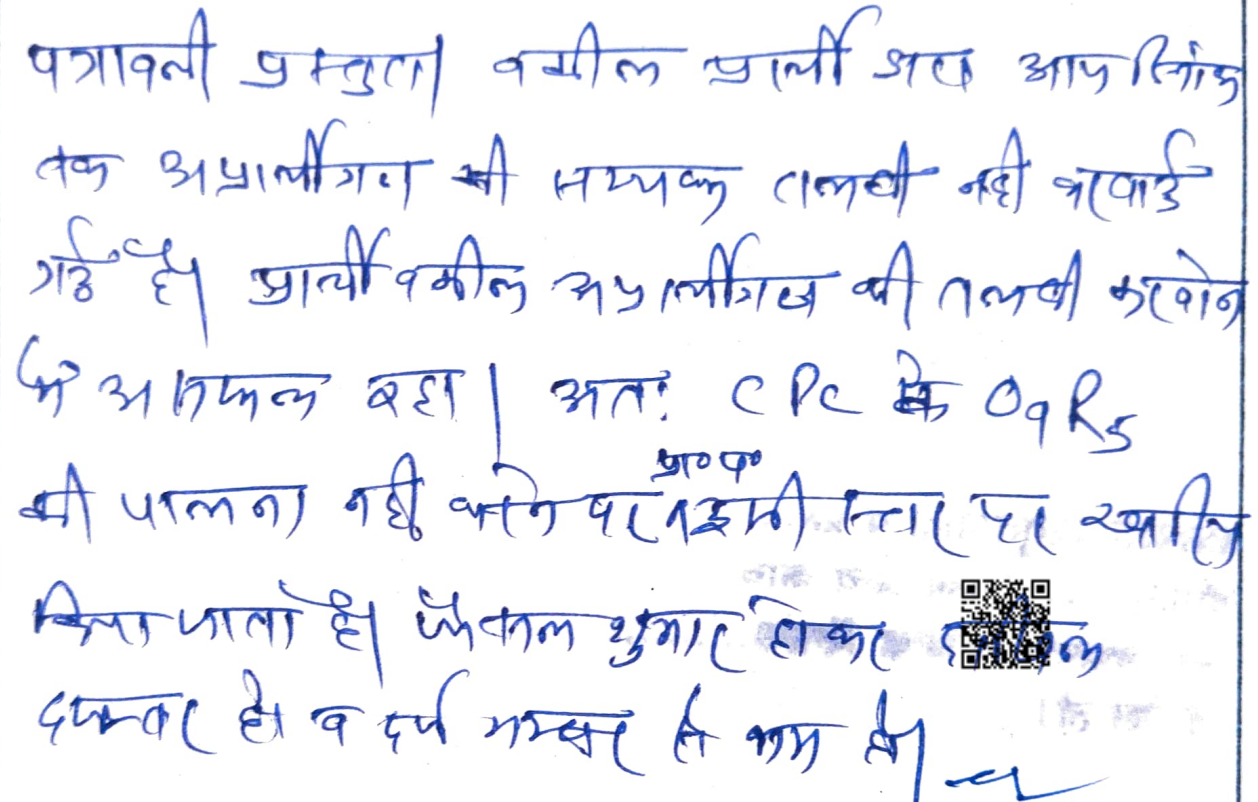 पत्रावली प्रस्तुत। वकील प्रार्थी अब आप दिनांक
तक अप्रार्थीगण की सम्यक तलबी नही करवाई
गई है। प्रार्थी वकील अप्रार्थीगण की तलबी करवाने
में असफल रहा। अतः CPC के O9 R5
की पालना नहीं करने पर प्रा० प० इसी स्तर पर खारिज
किया जाता है। फैसल शुमार होकर दाखिल
दफ्तर हो व दर्ज नम्बर से कम हो।